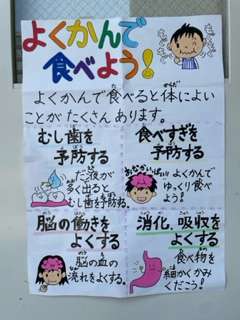 よくかんで
食べよう!
もぐもぐ
もぐもぐ
よくかんで食べると体によい
ことがたくさんあります。
むし歯を
予防する
だ液が
多く出ると
むし歯を予防。
食べすぎを
予防する
おなかいっぱい
よくかんで
ゆっくり食
べよう!
脳の働きを
よくする
脳の血の
流れをよくする。
消化、吸収を
よくする
食べ物を
細かくかみ
くだこう!